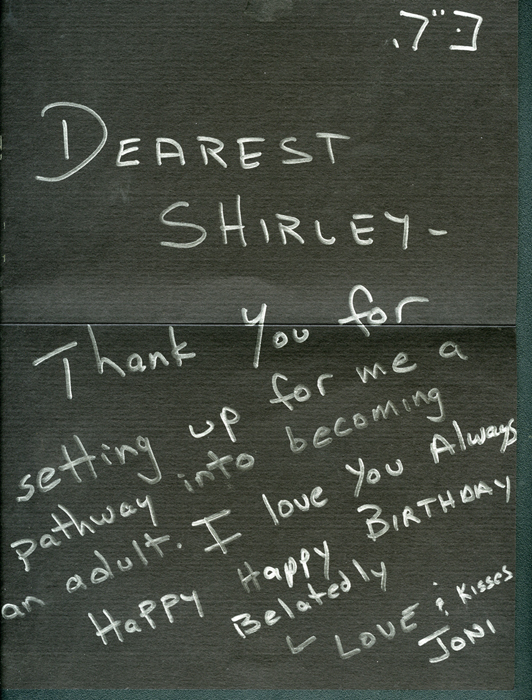 DEAREST
SHIRLEY-
Thank You for
setting up for me a
pathway into becoming
an adult. I love You Always
HaPPY Happy BIRTHDAY
Belatedly
LOVE & Kisses
JONI